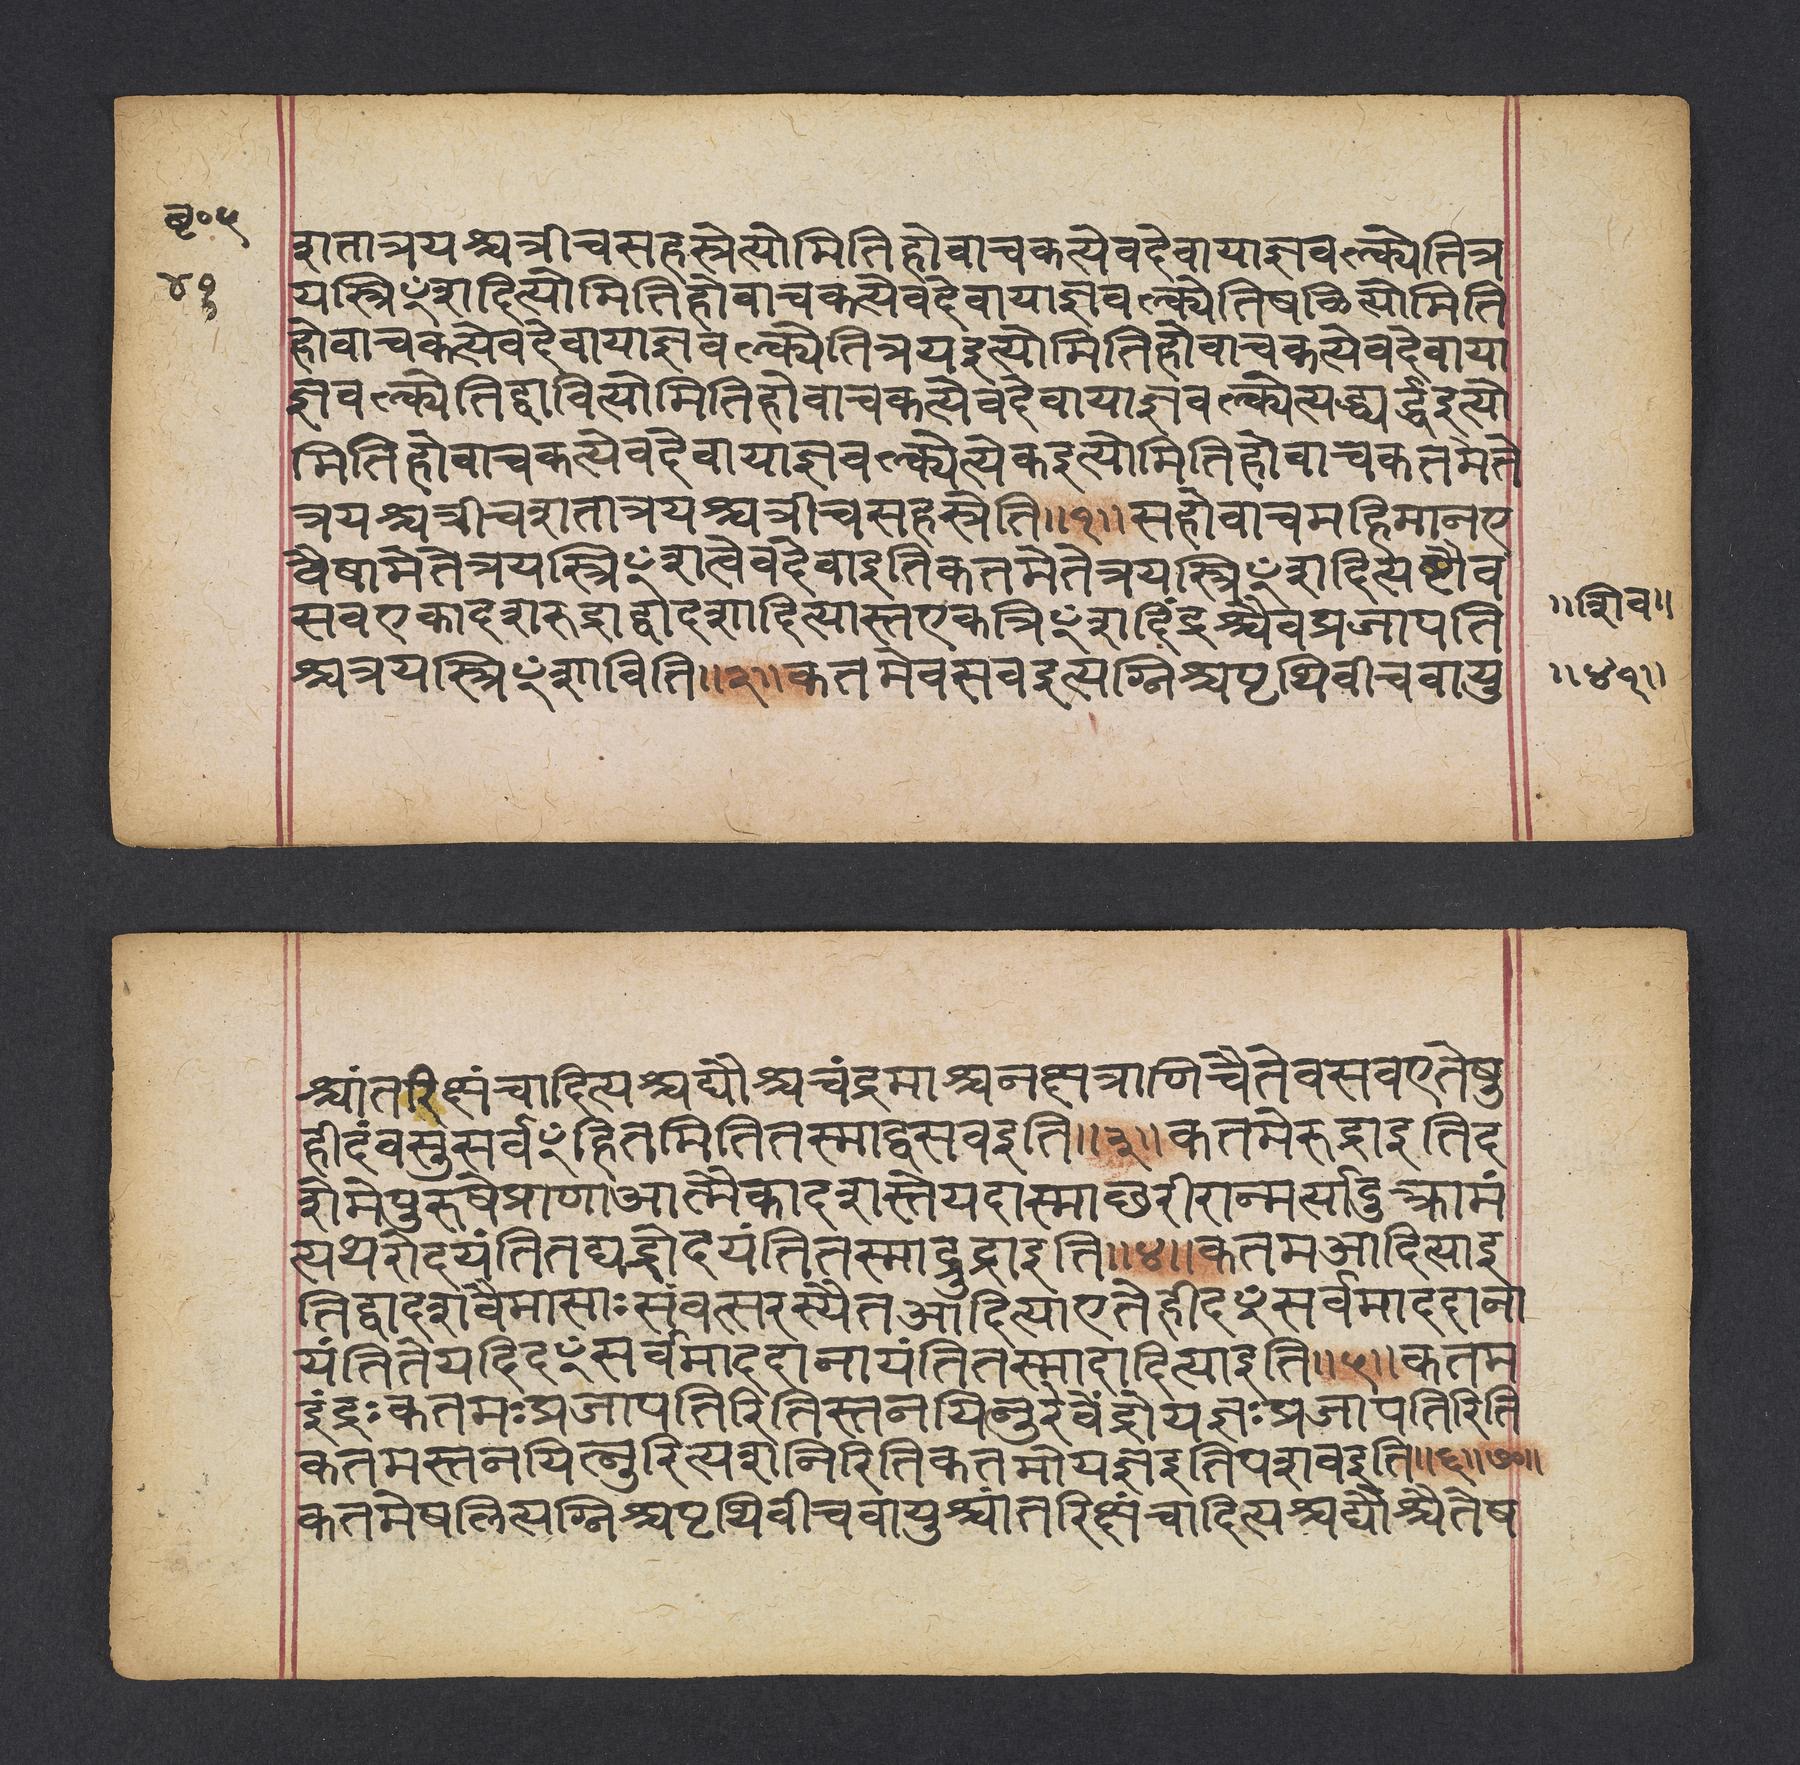 बृ॰५
४१
शतात्रयश्चत्रीचसहस्रेत्योमितिहोवाचकत्येवदेवायाज्ञवल्क्येतित्र
यस्त्रिꣳशदित्योमितिहोवाचकत्येवदेवायाज्ञवल्क्येतिषळित्योमिति
होवाचकत्येवदेवायाज्ञवल्क्येतित्रयइत्योमितिहोवाचकत्येवदेवाया
ज्ञवल्क्येतिद्वावित्योमितिहोवाचकत्येवदेवायाज्ञवल्क्येत्यध्यर्द्धइत्यो
मितिहोवाचकत्येवदेवायाज्ञवल्क्येत्येकइत्योमितिहोवाचकतमेते
त्रयश्चत्रीचशतात्रयश्चत्रीचसहस्रेति॥१॥सहोवाचमहिमानए
वैषामेतेत्रयस्त्रिꣳशत्वेवदेवाइतिकतमेतेत्रयस्त्रिꣳशदित्यष्टौव
सवएकादशरुद्राद्वादशादित्यास्तएकत्रिꣳशदिंद्रश्चैवप्रजापति
श्चत्रयस्त्रिꣳशाविति॥२॥कतमेवसवइत्यग्निश्चपृथिवीचवायु
॥शिव॥
॥४१॥
श्चांतरिक्षंचादित्यश्चद्यौश्चचंद्रमाश्चनक्षत्राणिचैतेवसवएतेषु
हीदंवसुसर्वꣳहितमितितस्माद्वसवइति॥३॥कतमेरुद्राइतिद
शेमेपुरुषेप्राणाआत्मैकादशस्तेयदास्माछरीरान्मर्त्यादुत्क्रामं
त्यथरोदयंतितद्यद्रोदयंतितस्माद्रुद्राइति॥४॥कतमआदित्याइ
तिद्वादशवैमासाःसंवत्सरस्यैतआदित्याएतेहीदꣳसर्वमाददाना
यंतितेयदिदꣳसर्वमाददानायंतितस्मादादित्याइति॥५॥कतम
इंद्रःकतमःप्रजापतिरितिस्तनयित्नुरेवेंद्रोयज्ञःप्रजापतिरिति
कतमस्तनयित्नुरित्यशनिरितिकतमोयज्ञइतिपशवइति॥६॥७॥
कतमेषलित्यग्निश्चपृथिवीचवायुश्चांतरिक्षंचादित्यश्चद्यौश्चैतेष